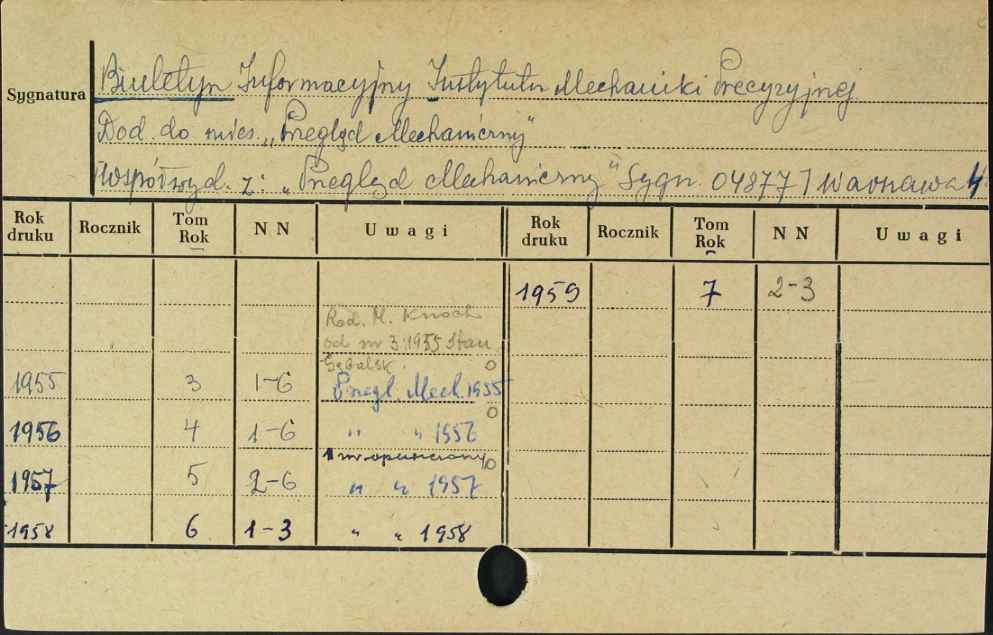 Sygnatura
Biuletyn Informacyjny Instytutu Mechaniki Precyzyjnej
Dod. do mies. „Przegląd Mechaniczny"
Współwyd. z: „Przegląd Mechaniczny" Sygn. 04877 Warszawa 4
Rok druku Rocznik Tom Rok N N Uwagi Rok druku Rocznik Tom Rok N N Uwagi
1959 7 2-3
Red. M. Knoch
od nr 3.1955 Stan.
1955 3 1-6 Przegl. Mech. 1955
1956 4 1-6 " " 1956
1 nr opuszczony
1957 5 2-6 " " 1957
1958 6 1-3 " " 1958